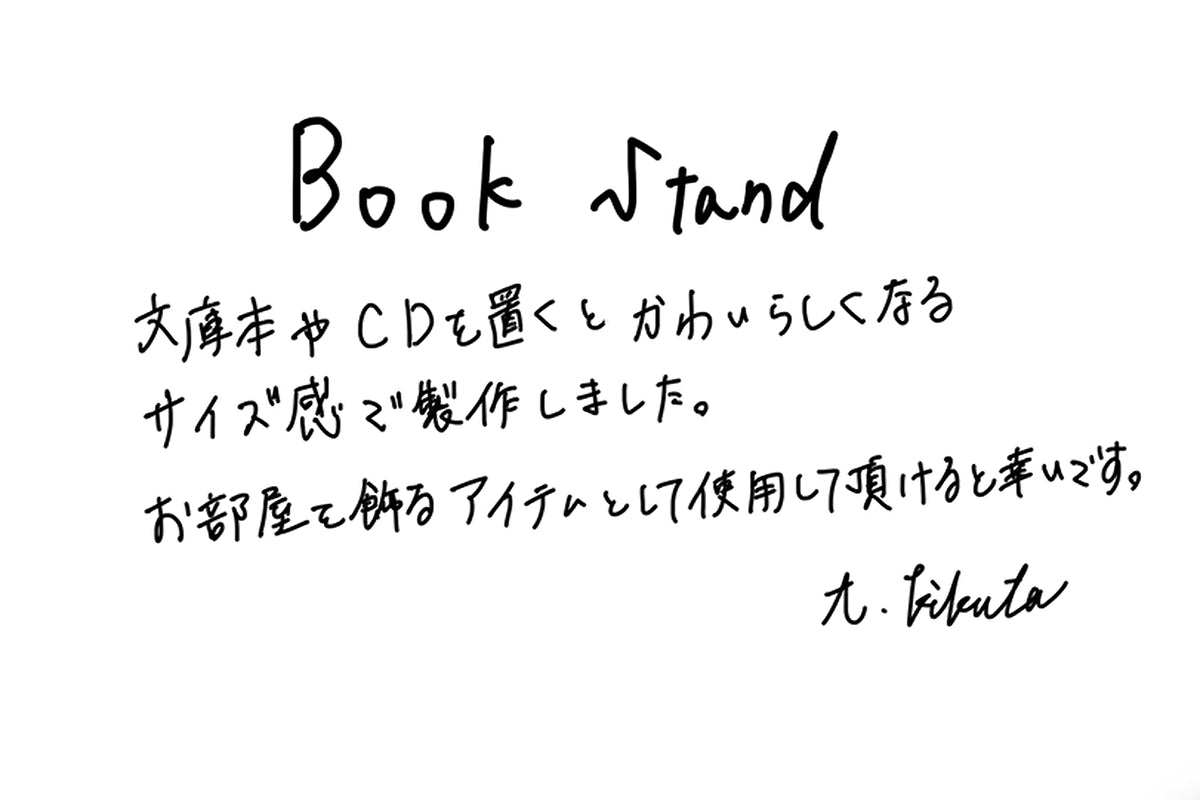 Book Stand
文庫本やCDを置くとかわいらしくなる
サイズ感で製作しました。
お部屋を飾るアイテムとして使用して頂けると幸いです。
t. kikuta